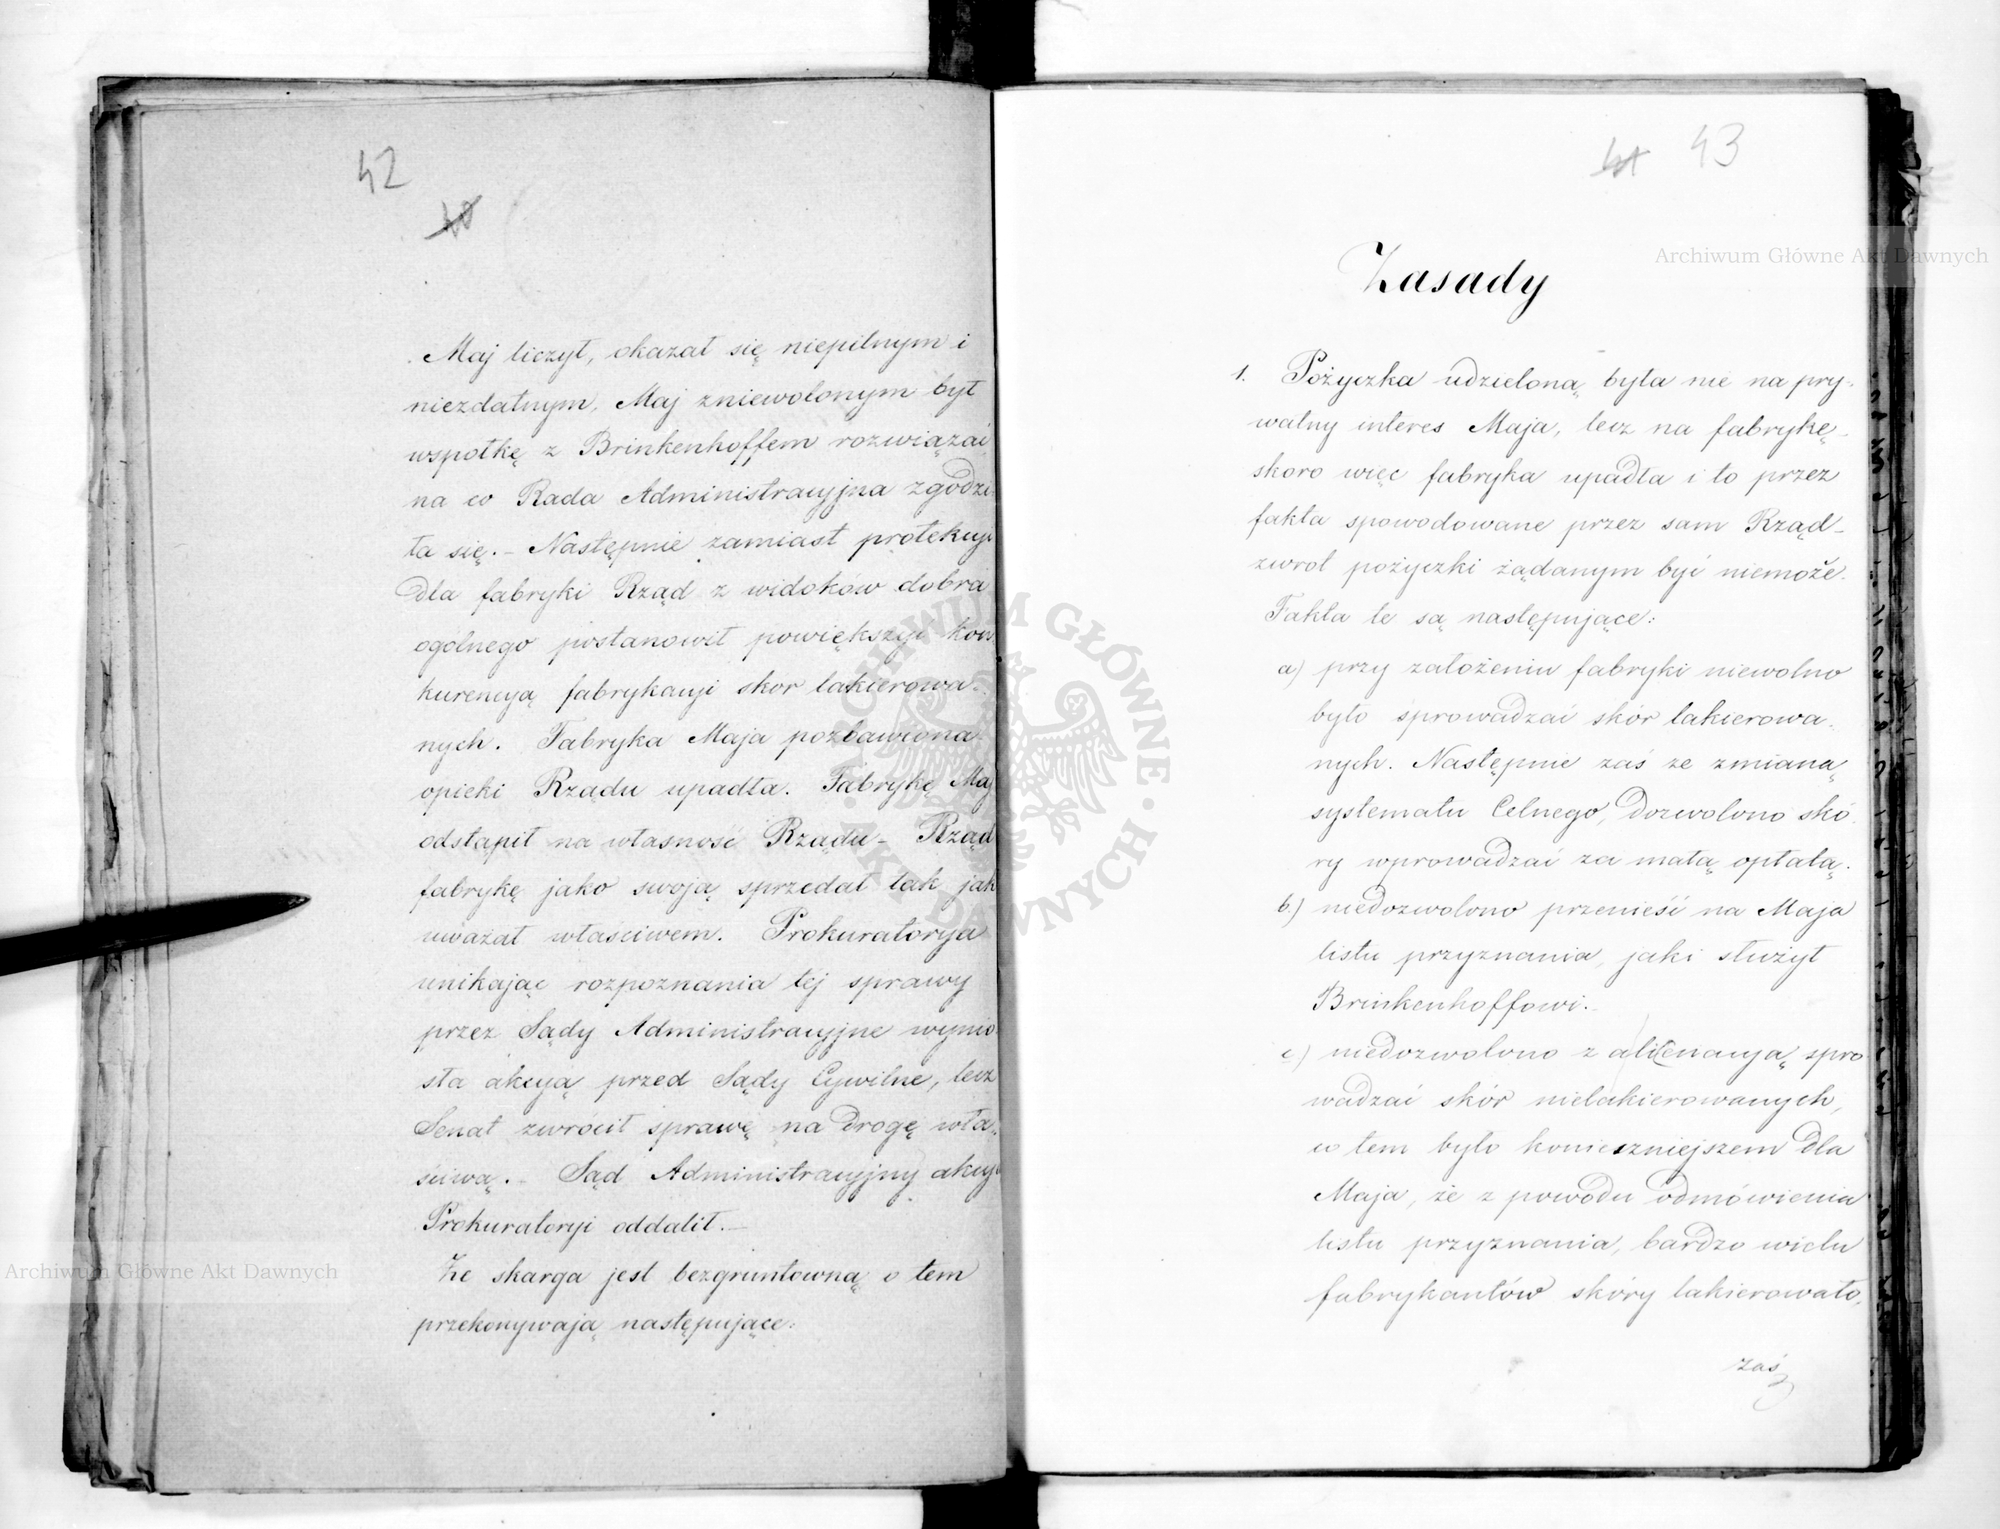 42
40
Maj liczył, okazał się niepilnym i
niezdatnym, Maj zniewolonym był
wspołkę z Brinkenhoffem rozwiązać
na co Rada Administracyjna zgodzi
ła się. – Następnie zamiast protekcyi
dla fabryki Rząd z widoków dobra
ogólnego postanowił powiększyć kon
kurencyą fabrykacyi skor lakierowa-
nych. Fabryka Maja pozbawiona
opieki Rządu upadła. Fabrykę Maj
odstąpił na własność Rządu – Rząd
fabrykę jako swoją sprzedał tak jak
uważał właściwem. Prokuratorya
unikając rozpoznania tej sprawy
przez Sądy Administracyjne wynio
sła akcyą przed Sądy Cywilne, lecz
Senat zwrócił sprawę na drogę wła-
ściwą. – Sąd Administracyjny akcyę
Prokuratoryi oddalił. –
Że skarga jest bezgruntowną o tem
przekonywają następujące:
41 43
Zasady
1. Pożyczka udzieloną była nie na pry-
watny interes Maja, lecz na fabrykę –
skoro więc fabryka upadła i to przez
fakta spowodowane przez sam Rząd –
zwrot pożyczki żądanym być niemoże.
Fakta te są następujące:
a) przy założeniu fabryki niewolno
było sprowadzać skór lakierowa-
nych. Następnie zaś ze zmianą
systematu Celnego, dozwolono skó
ry wprowadzać za małą opłatą.
b.) niedozwolono przenieść na Maja
listu przyznania, jaki służył
Brinkenhoffowi. –
c) niedozwolono z alicenacyą spro
wadzać skór nielakierowanych,
co tem było konieczniejszem dla
Maja, że z powodu odmówienia
listu przyznania, bardzo wielu
fabrykantów skóry lakierowało,
zaś
Archiwum Główne Akt Dawnych
Archiwum Główne Akt Dawnych
ARCHIWUM GŁÓWNE · AKT DAWNYCH ·